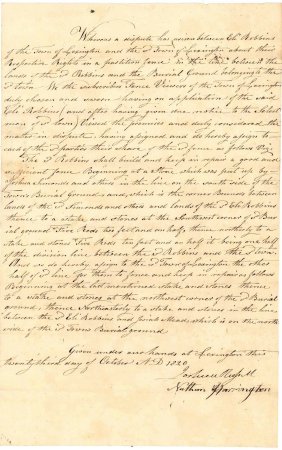 Whereas a dispute has arisen between Eli Robbins
of the Town of Lexington and the sd Town of Lexington about their
Respective Rights in a partition fence in the line between the
lands of the sd Robbins and the Burial Ground belonging to the
sd Town We the subscribers Fence Viewers of the Town of Lexington
duly chosen and sworn having on application of the said
Eli Robbins and after having given due notice to the Select
men of sd Town viewed the premises and duly considered the
matter in dispute having assigned and do hereby assign to
each of the sd parties their share of the sd fence as follows Viz
The sd Robbins shall build and keep in repair a good and
sufficient fence Beginning at a Stone which was put up by
Joshua Simonds and others in the line on the south side of the
Town's Burial Ground and which is the corner Bounds between
lands of the sd Simonds and others and lands of the sd Eli Robbins
thence to a stake and stones at the Southwest corner of sd Bur
ial ground Five Rods two feet and an half, thence northerly to a
stake and stones Five Rods ten feet and an half it being one half
of the division line between the sd Robbins and the sd Town
And we do hereby assign to the sd Town of Lexington the other
half of sd line for them to fence and keep in repair as follows
Beginning at the last mentioned stake and stones thence
to a stake and stones at the northwest corner of the sd Burial
ground, thence Northeasterly to a stake and stones in the line
between the sd Eli Robbins and Josiah Mead which is on the north
side of the sd Towns Burial ground
Given under our hands at Lexington this
twenty third day of October A.D. 1820
Joshua Russell
Nathan Harrington